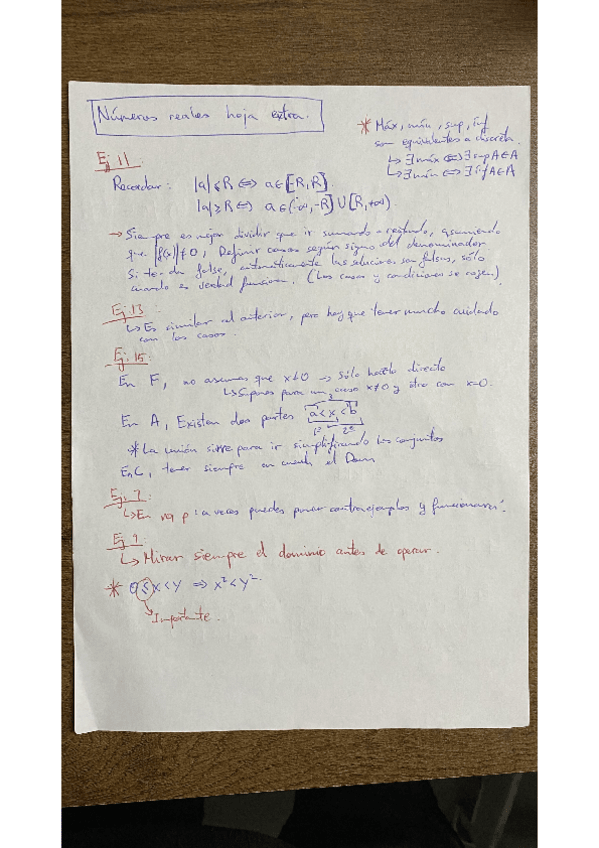 Números reales hoja extra.
* Máx, mín, sup, ínf
son equivalentes a discreta.
↳ ∃ máx ⇔ ∃ sup A ∈ A
↳ ∃ mín ⇔ ∃ ínf A ∈ A
Ej 11.
Recordar: |a| ≤ R ⇔ a ∈ [-R, R]
|a| ≥ R ⇔ a ∈ (-∞, -R] ∪ [R, +∞)
→ Siempre es mejor dividir que ir sumando o restando, asumiendo
que f(x) ≠ 0, Definir casos según signo del denominador
Si te da false, automáticamente las soluciones son falsas, sólo
cuando es verdad funciona. (Los casos y condiciones se cogen)
Ej 13
↳ Es similar al anterior, pero hay que tener mucho cuidado
con los casos.
Ej. 15:
En F, no asumas que x≠0 → sólo hacerlo directo
↳ Supones para un caso x≠0 y otro con x=0.
En A, Existen dos partes a < x < b
1º 2º
* La unión sirve para ir simplificando los conjuntos
En C, tener siempre en cuenta el Dom
Ej. 7:
↳ En p: a veces puedes poner contraejemplos y funcionará.
Ej 9
↳ Mirar siempre el dominio antes de operar.
* 0 ≤ x < y ⇒ x² < y².
Importante.